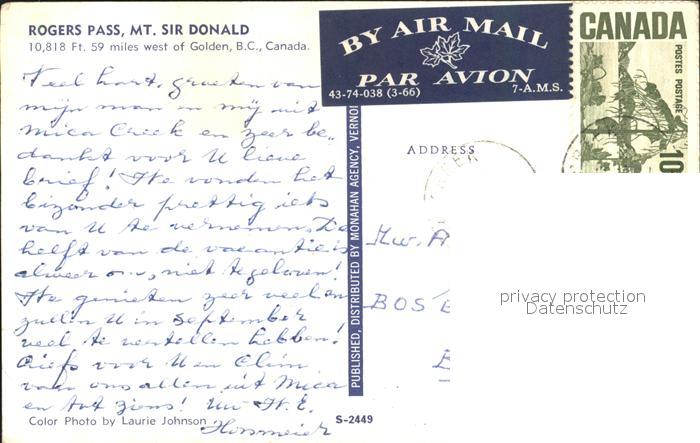 ROGERS PASS, MT. SIR DONALD
10,818 Ft. 59 miles west of Golden, B.C., Canada.
BY AIR MAIL
PAR AVION
43-74-038 (3-66)
7-A.M.S.
CANADA
POSTES POSTAGE
10
Veel hart. groeten van
mijn man en mij uit
Mica Creek en zeer be-
dankt voor U lieve
brief! We vonden het
bizonder prettig iets
van U te vernemen. De
helft van de vacantie is
alweer om, niet te geloven!
We genieten zeer veel en
zullen U in September
veel te vertellen hebben!
Liefs voor U en
van ons allen uit Mica
en tot ziens! Uw
Color Photo by Laurie Johnson
S-2449
PUBLISHED, DISTRIBUTED BY MONAHAN AGENCY, VERNON
ADDRESS
Mw. A
BOS
privacy protection
Datenschutz